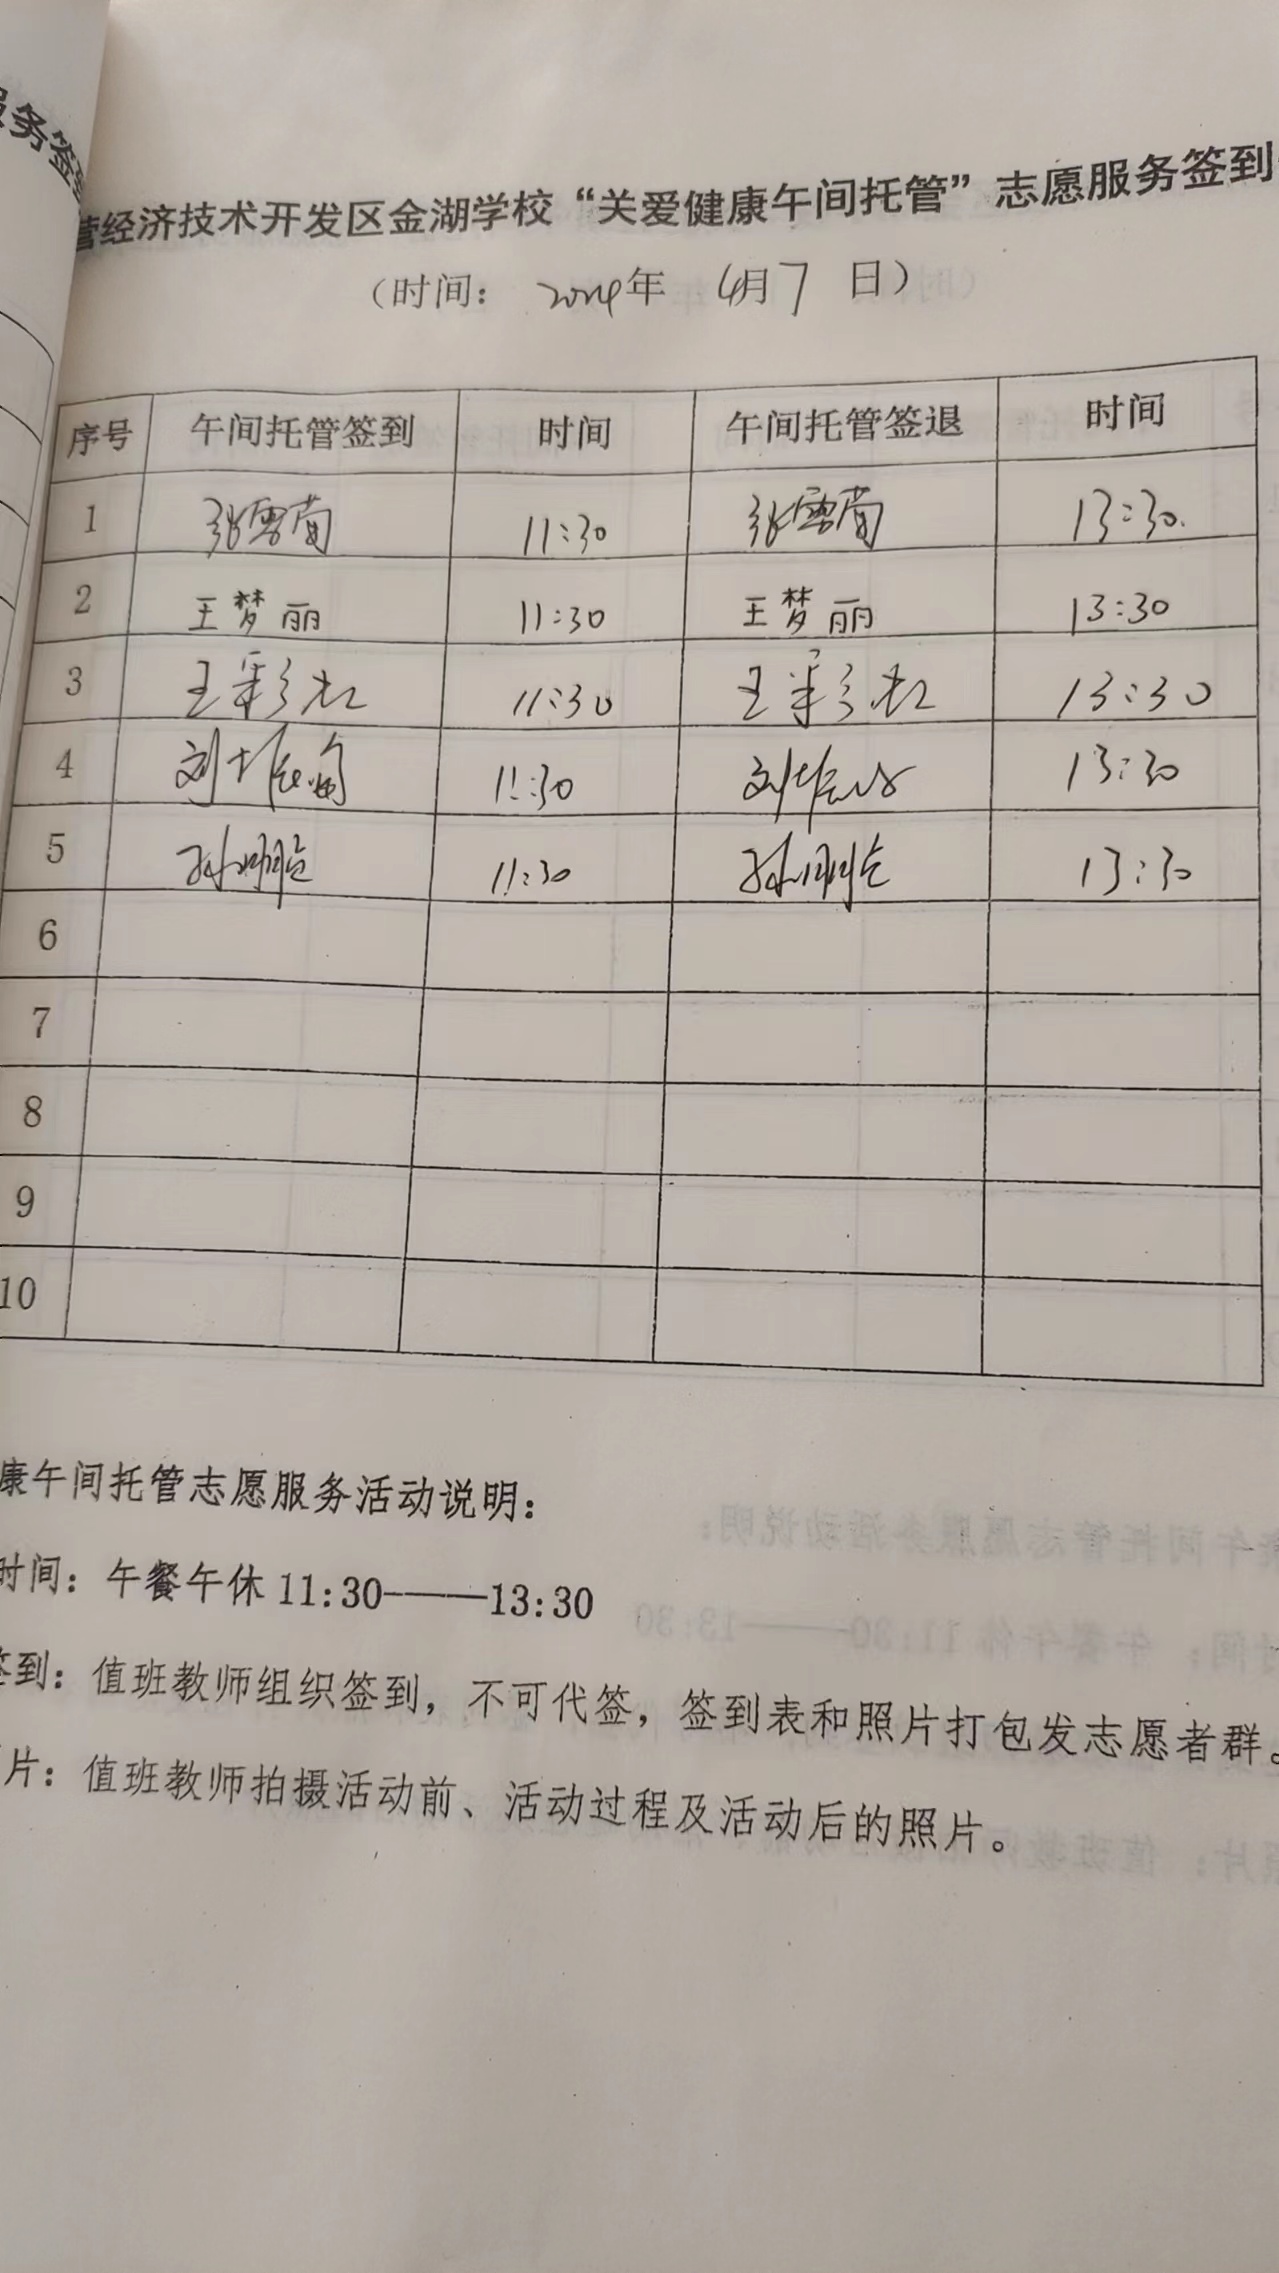 服务签到
营经济技术开发区金湖学校“关爱健康午间托管”志愿服务签到
（时间： 2024年 4月7 日）
序号 午间托管签到 时间 午间托管签退 时间
1 张雪菊 11:30 张雪菊 13:30.
2 王梦丽 11:30 王梦丽 13:30
3 王彩虹 11:30 王彩虹 13:30
4 刘 11:30 刘 13:30
5 孙 11:30 孙 13:30
6
7
8
9
10
康午间托管志愿服务活动说明：
时间：午餐午休 11:30———13:30
签到：值班教师组织签到，不可代签，签到表和照片打包发志愿者群。
片：值班教师拍摄活动前、活动过程及活动后的照片。